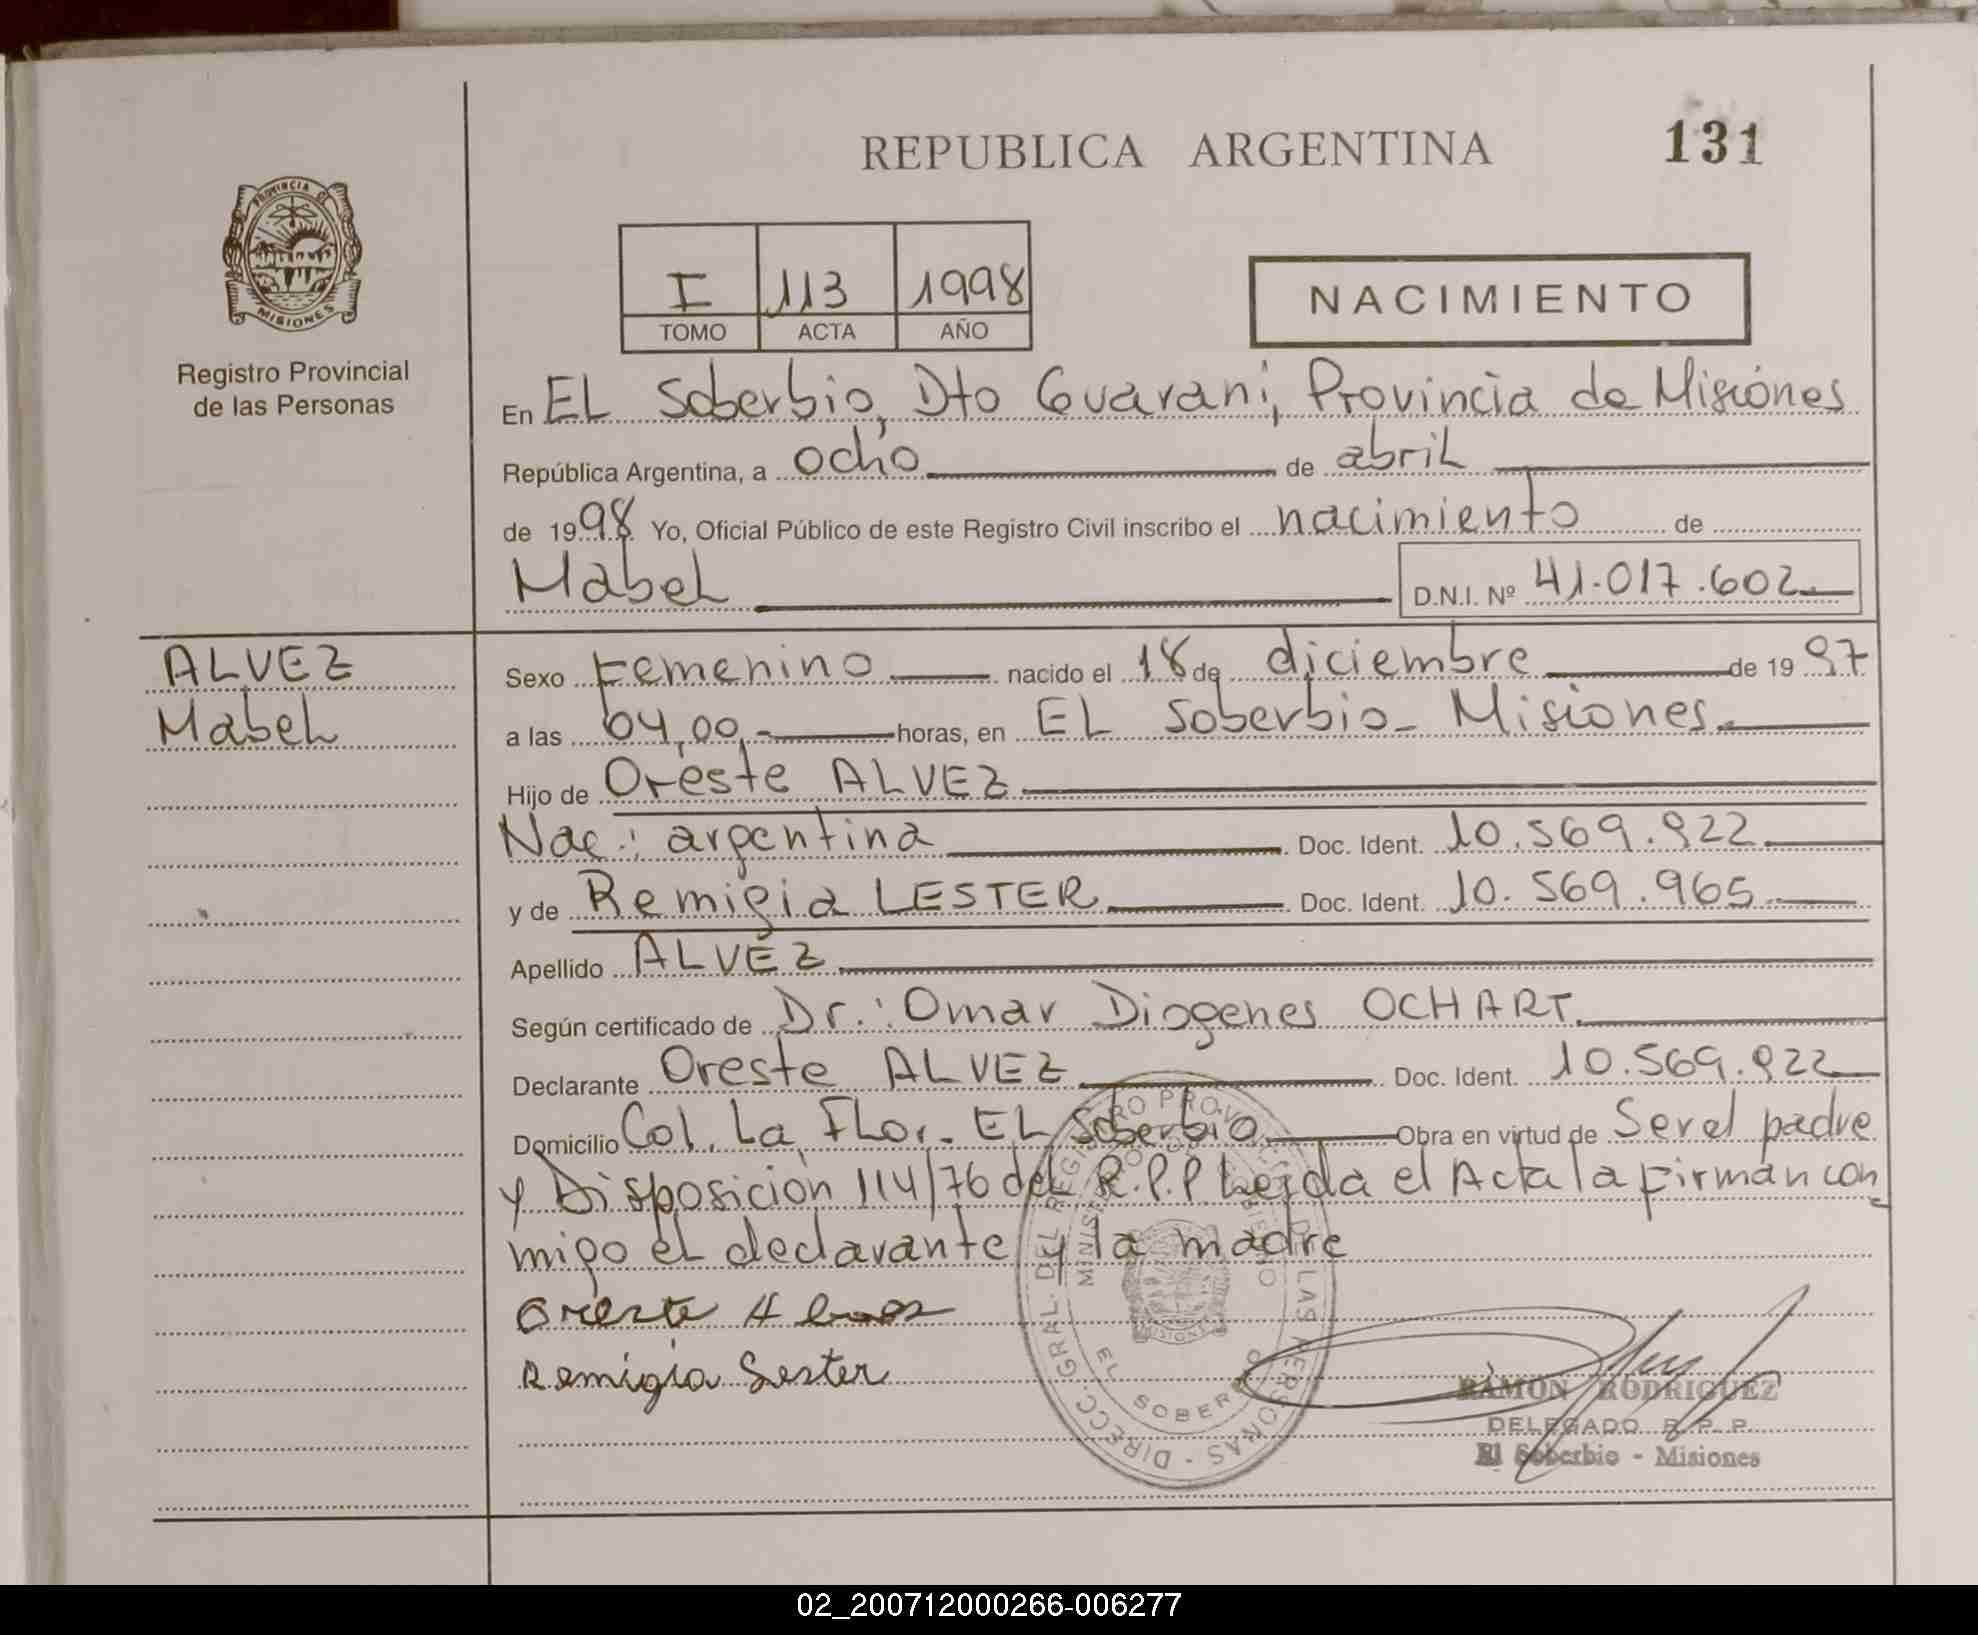 REPUBLICA ARGENTINA
131
PROVINCIA DE
MISIONES
Registro Provincial
de las Personas
I 113 1998
TOMO ACTA AÑO
NACIMIENTO
En EL Soberbio, Dto Guarani, Provincia de Misiones
República Argentina, a ocho de abril
de 1998 Yo, Oficial Público de este Registro Civil inscribo el nacimiento de
Mabel
D.N.I. Nº 41.017.602
ALVEZ
Mabel
Sexo Femenino nacido el 18 de diciembre de 1997
a las 04,00,- horas, en EL Soberbio - Misiones
Hijo de Oreste ALVEZ
Nac: argentina Doc. Ident. 10.569.922
y de Remigia LESTER Doc. Ident. 10.569.965
Apellido ALVEZ
Según certificado de Dr.: Omar Diogenes OCHART
Declarante Oreste ALVEZ Doc. Ident. 10.569.922
Domicilio Col. La Flor. EL Soberbio Obra en virtud de Ser el padre
y Disposición 114/76 del R.P.P Leida el Acta la firman con
migo el declarante y la madre
Oreste Alvez
Remigia Lester
DIRECC. GRAL. DEL REGISTRO PROVINCIAL DE LAS PERSONAS -
EL SOBERBIO
MISIONES
RAMON RODRIGUEZ
DELEGADO R. P. P.
El Soberbio - Misiones
02_200712000266-006277